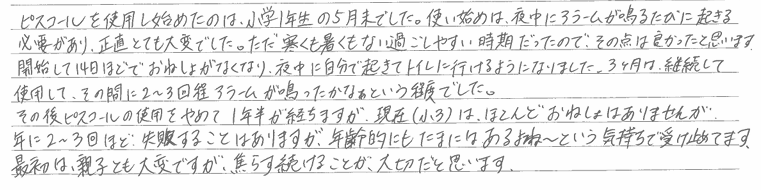 ピスコールを使用し始めたのは、小学1年生の5月まででした。使い始めは、夜中にアラームが鳴るたびに起きる
必要があり、正直とても大変でした。ただ寒くも暑くもない過ごしやすい時期だったので、その点は良かったと思います。
開始して14日ほどでおねしょがなくなり、夜中に自分で起きてトイレに行けるようになりました。3ヶ月は、継続して
使用して、その間に2~3回程アラームが鳴ったかなぁという程度でした。
その後ピスコールの使用をやめて1年半が経ちますが、現在(小3)は、ほとんどおねしょはありませんが、
年に2~3回ほど失敗することはありますが、年齢的にもたまにはあるよね〜という気持ちで受け止めてます。
最初は、親子とも大変ですが、焦らず続けることが、大切だと思います。